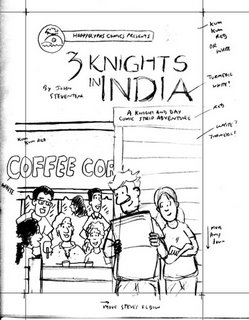 HAPPYPAPPUS COMICS PRESENTS
3 KNIGHTS
IN INDIA
BY JOHN
STEVENTON
A KNIGHT AND DAY
COMIC STRIP ADVENTURE
KUM
KUM
RED
OR
WHITE
TURMERIC
WHITE?
RED
WHITE?
TURMERIC?
KUM KUM RED
COFFEE COR
WHITE
MOVE
AMY
DOWN
MOVE STEVE'S ELBOW